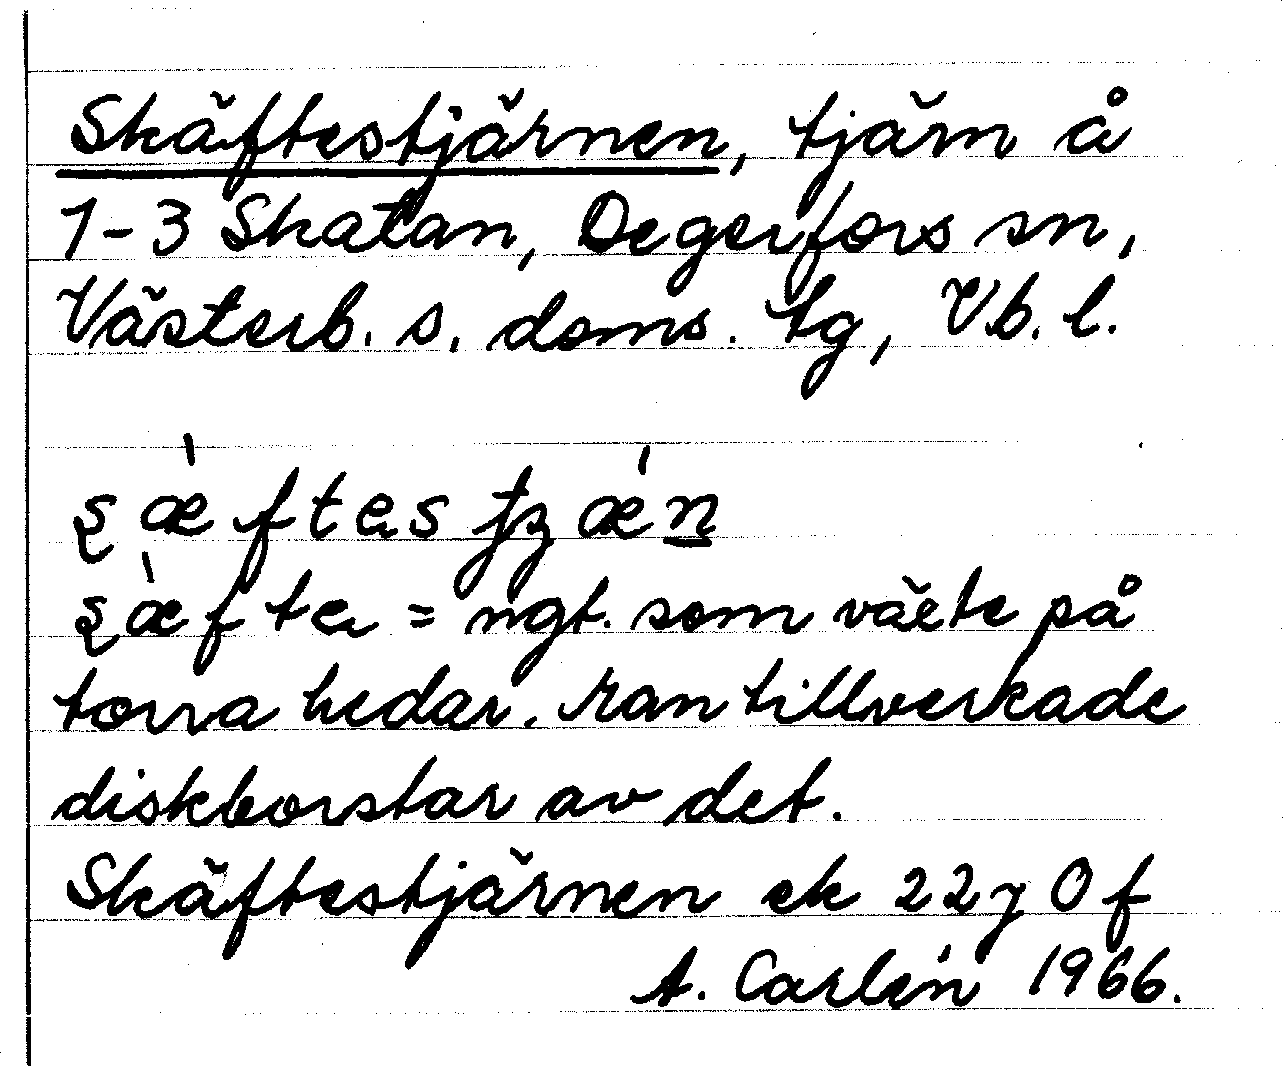 Skäftestjärnen, tjärn å
1-3 Skatan, Degerfors sn,
Västerb. s. doms. tg, Vb. l.
ʂæ̀ftes
ʂæ̀fte = ngt. som växte på
torra hedar. Man tillverkade
diskborstar av det.
Skäftestjärnen ek 22 y 0 f
A. Carlén 1966.